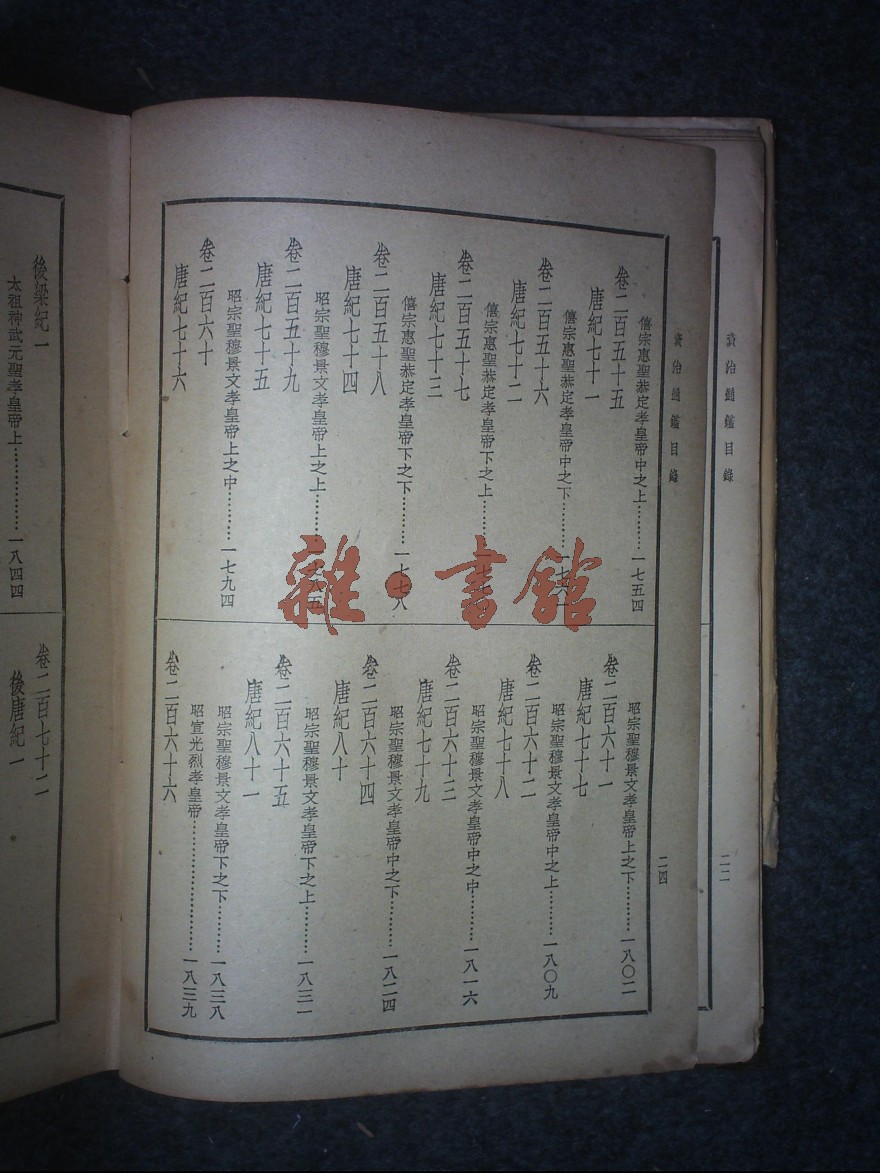 資治通鑑目錄
二二
資治通鑑目錄
二四
僖宗惠聖恭定孝皇帝中之上………一七五四
卷二百五十五
唐紀七十一
僖宗惠聖恭定孝皇帝中之下………
卷二百五十六
唐紀七十二
僖宗惠聖恭定孝皇帝下之上………
卷二百五十七
唐紀七十三
僖宗惠聖恭定孝皇帝下之下………一七七八
卷二百五十八
唐紀七十四
昭宗聖穆景文孝皇帝上之上………
卷二百五十九
唐紀七十五
昭宗聖穆景文孝皇帝上之中………一七九四
卷二百六十
唐紀七十六
昭宗聖穆景文孝皇帝上之下………一八〇二
卷二百六十一
唐紀七十七
昭宗聖穆景文孝皇帝中之上………一八〇九
卷二百六十二
唐紀七十八
昭宗聖穆景文孝皇帝中之中………一八一六
卷二百六十三
唐紀七十九
昭宗聖穆景文孝皇帝中之下………一八二四
卷二百六十四
唐紀八十
昭宗聖穆景文孝皇帝下之上………一八三一
卷二百六十五
唐紀八十一
昭宗聖穆景文孝皇帝下之下………一八三八
昭宣光烈孝皇帝……………………一八三九
卷二百六十六
後梁紀一
太祖神武元聖孝皇帝上……………一八四四
卷二百七十二
後唐紀一
雜·書館